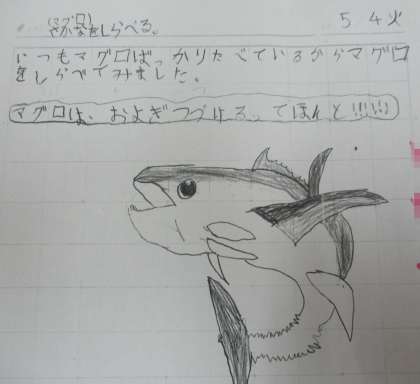 (マグロ)
さかなをしらべる。 5 4 火
いつもマグロばっかりたべているからマグロ
をしらべてみました。
マグロは、およぎつづけるってほんと!!!!!